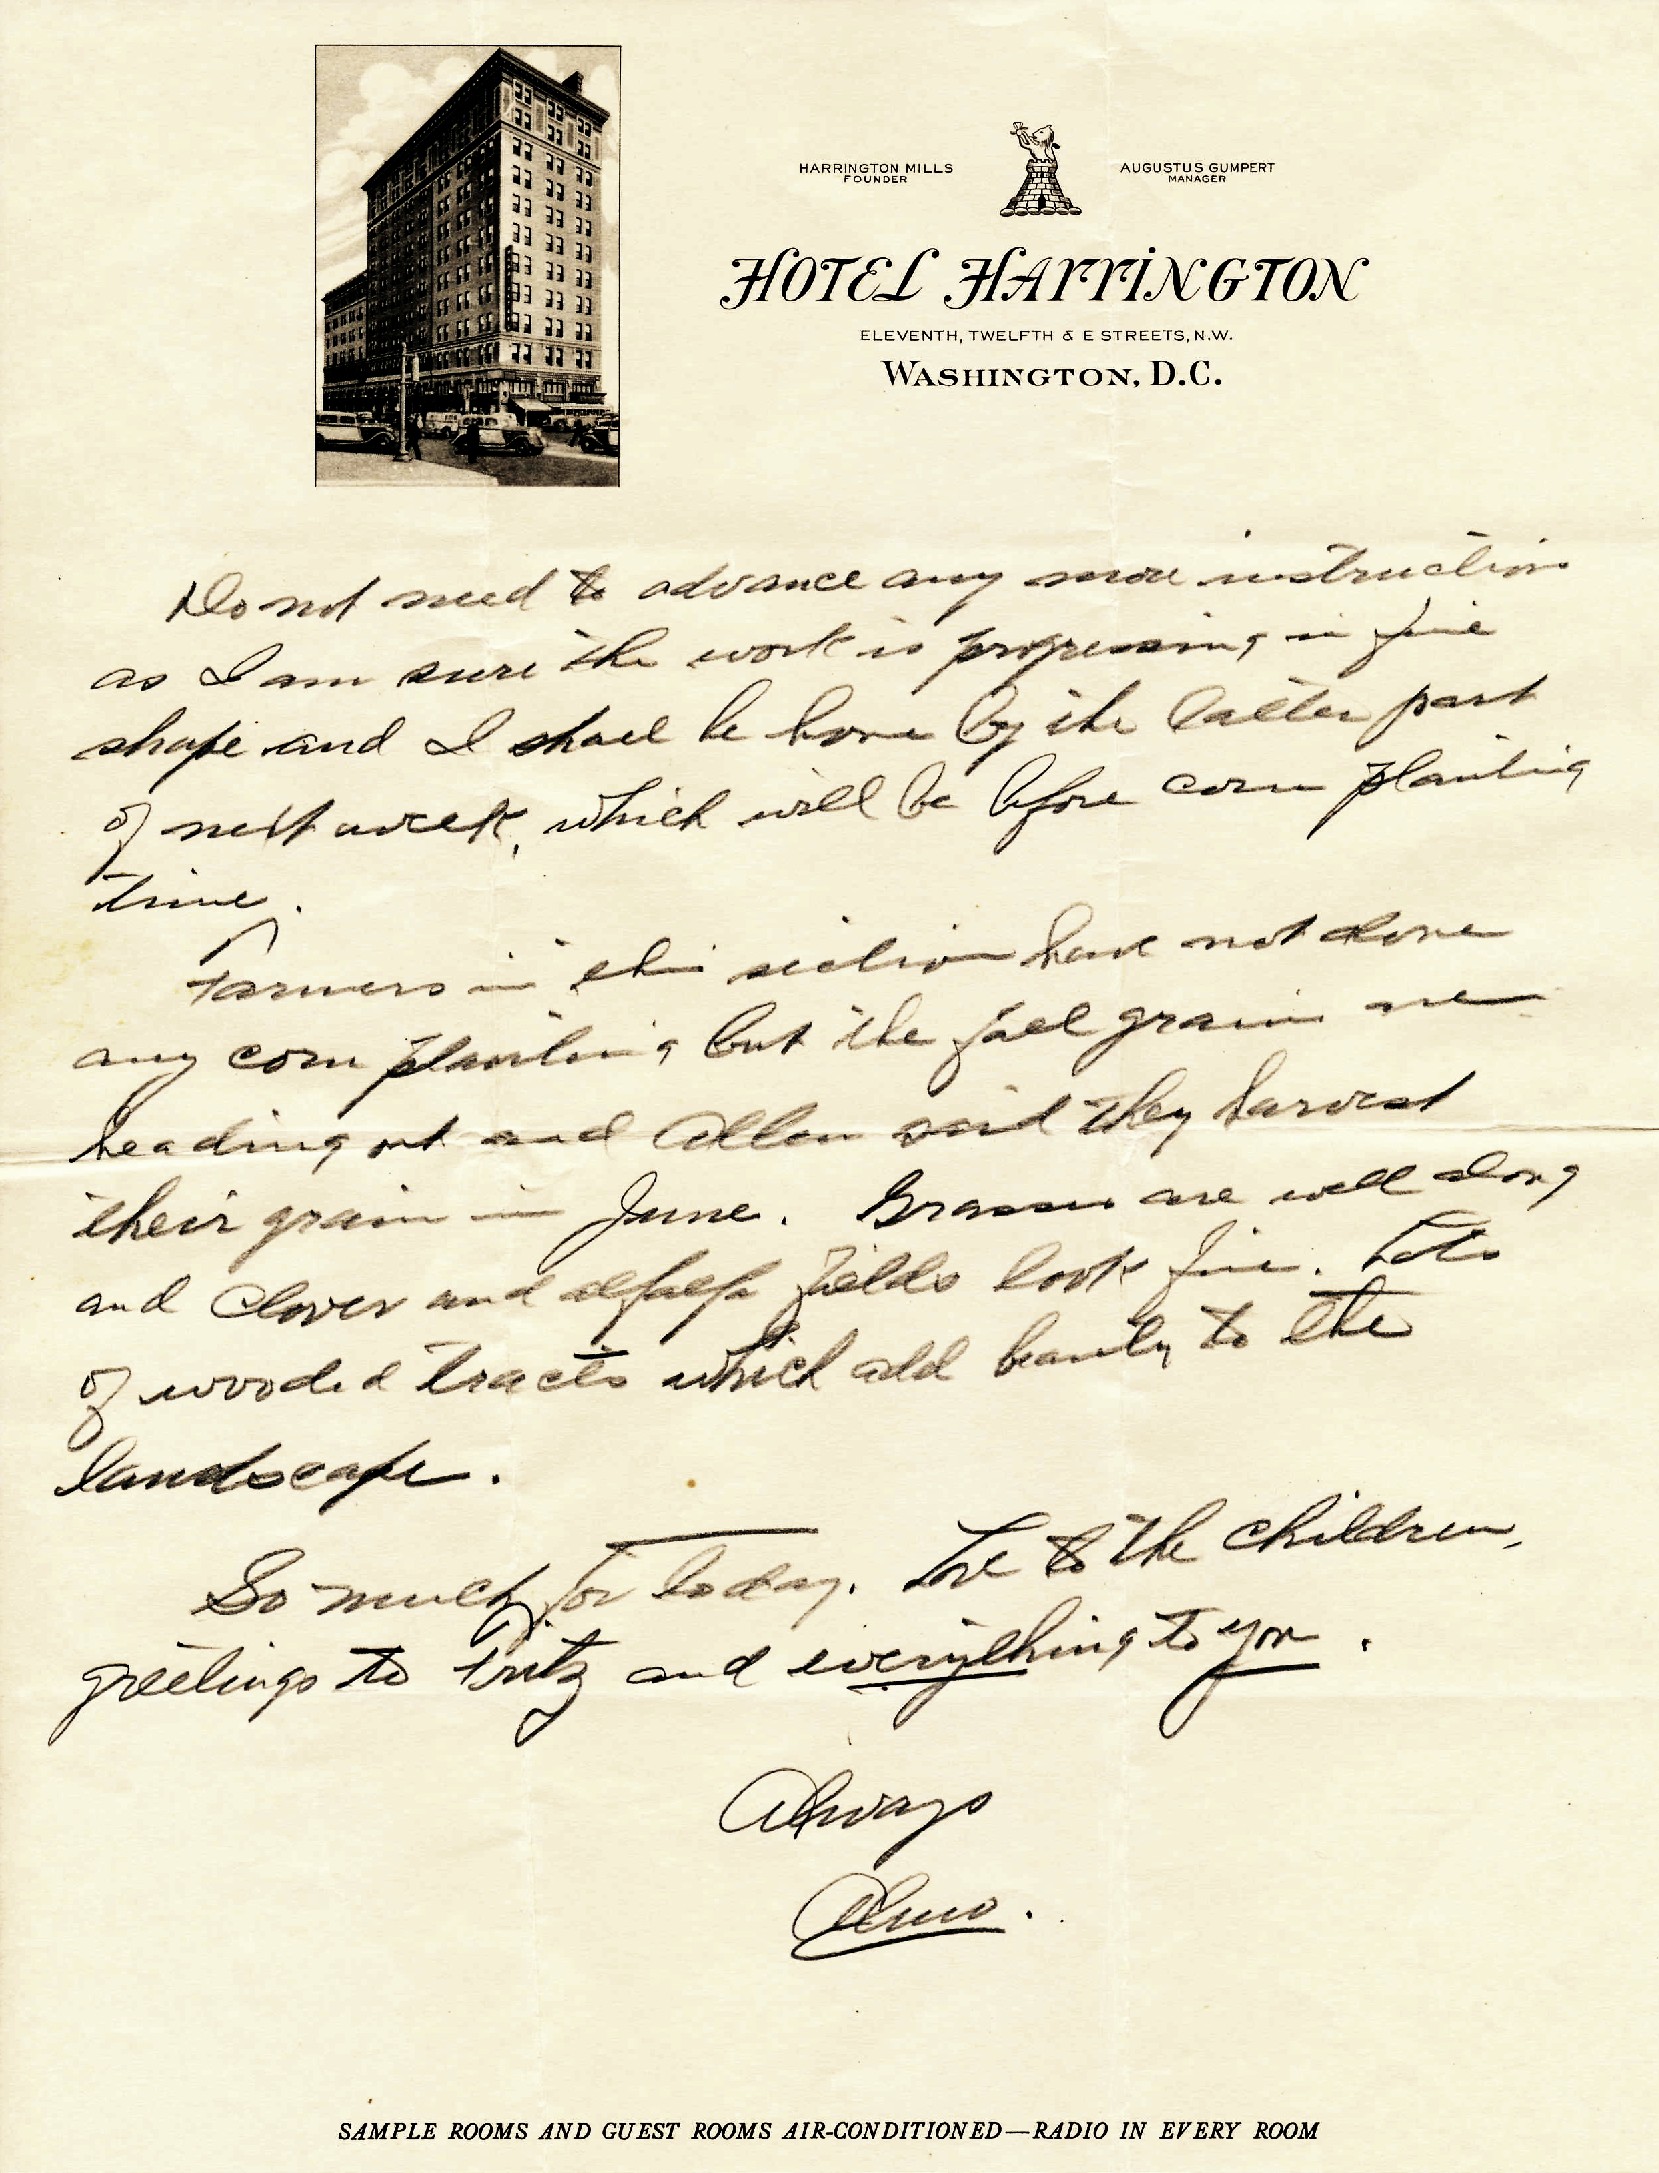 HARRINGTON MILLS
FOUNDER
AUGUSTUS GUMPERT
MANAGER
HOTEL HARRINGTON
ELEVENTH, TWELFTH & E STREETS, N.W.
WASHINGTON, D.C.
Do not need to advance any more instructions
as I am sure the work is progressing in fine
shape and I shall be home by the latter part
of next week, which will be before corn planting
time.
Farmers in this section have not done
any corn planting but the fall grains are
heading out and Allen said they harvest
their grain in June. Grasses are well along
and clover and alfalfa fields look fine. Lots
of wooded tracts which add beauty to the
landscape.
So much for today. Love to the children,
greetings to Fritz and everything to you.
Always
SAMPLE ROOMS AND GUEST ROOMS AIR-CONDITIONED—RADIO IN EVERY ROOM